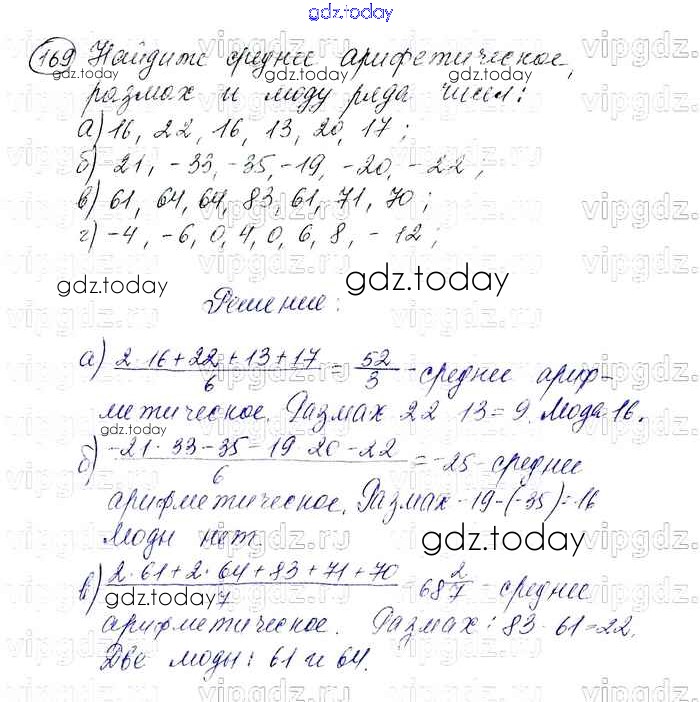 gdz.today
169 Найдите среднее арифметическое,
размах и моду ряда чисел:
а) 16, 22, 16, 13, 20, 17;
б) -21, -33, -35, -19, -20, -22;
в) 61, 64, 64, 83, 61, 71, 70;
г) -4, -6, 0, 4, 0, 6, 8, -12;
Решение:
а) 2·16+22+13+17/6 = 52/3 - среднее ариф-
метическое. Размах 22 13=9. Мода 16.
б) -21· 33-35-19 20-22/6 = -25 - среднее
арифметическое. Размах -19-(-35)=16
Моды нет.
в) 2·61+2·64+83+71+70/7 = 68 2/7 - среднее
арифметическое. Размах: 83-61=22.
Две моды: 61 и 64.
gdz.today
gdz.today
gdz.today
gdz.today
gdz.today
gdz.today
gdz.today
gdz.today
gdz.today